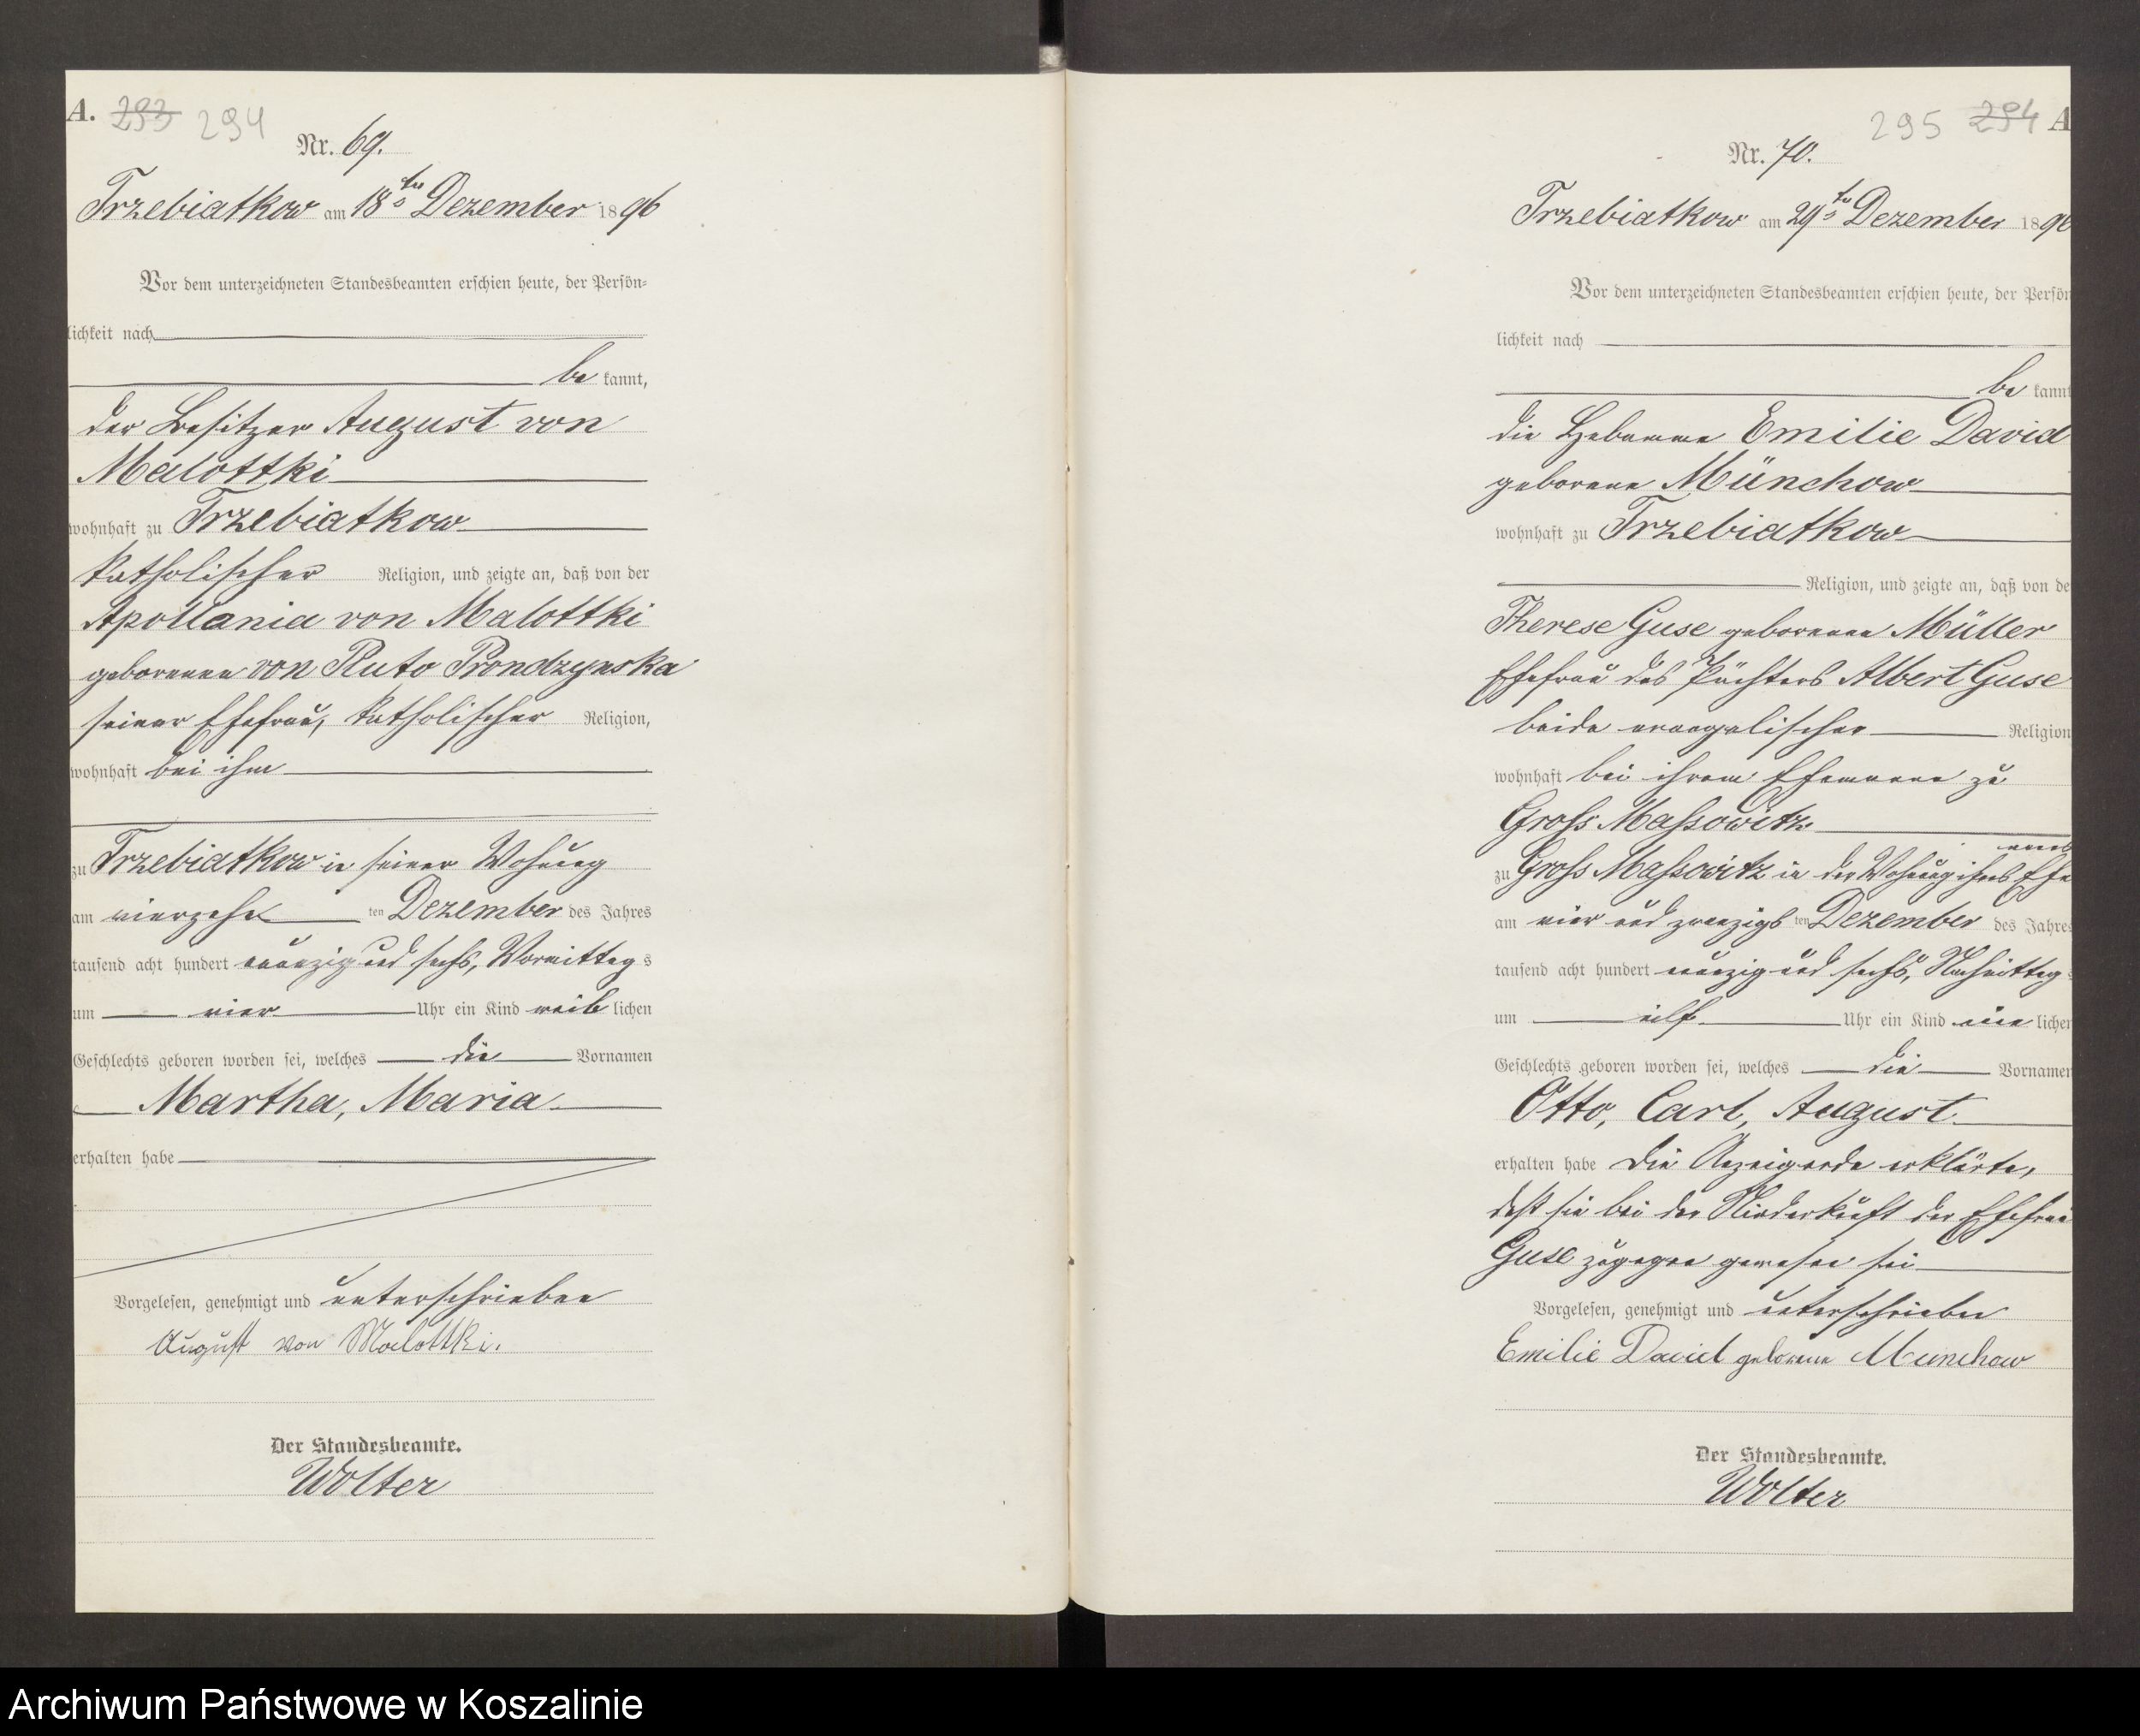 A. 293 294
Nr. 69.
Trzebiatkow am 18ten Dezember 1896
Vor dem unterzeichneten Standesbeamten erschien heute, der Persön-
lichkeit nach
be kannt,
der Besitzer August von
Malottki
wohnhaft zu Trzebiatkow
katholischer Religion, und zeigte an, daß von der
Apollania von Malottki
geborenen von Pluto Prondzynska
seiner Ehefrau, katholischer Religion,
wohnhaft bei ihm
zu Trzebiatkow in seiner Wohnung
am vierzehn ten Dezember des Jahres
tausend acht hundert neunzig und sechs, Vormittag s
um vier Uhr ein Kind weib lichen
Geschlechts geboren worden sei, welches die Vornamen
Martha, Maria
erhalten habe
Vorgelesen, genehmigt und unterschrieben
August von Malottki.
Der Standesbeamte.
Wolter
295 294 A
Nr. 70.
Trzebiatkow am 29ten Dezember 1896
Vor dem unterzeichneten Standesbeamten erschien heute, der Persön
lichkeit nach
be kannt
die Hebamme Emilie David
geborene Münchow
wohnhaft zu Trzebiatkow
Religion, und zeigte an, daß von de
Therese Guse geborenen Müller
Ehefrau des Pächters Albert Guse
beide evangelischer Religion
wohnhaft bei ihrem Ehemanne zu
Gross Massowitz
zu Gross Massowitz in der Wohnung ihres Ehe
am vier und zwanzigs ten Dezember des Jahres
tausend acht hundert neunzig und sechs, Nachmittag s
um eilf Uhr ein Kind män lichen
Geschlechts geboren worden sei, welches die Vornamen
Otto, Carl, August
erhalten habe Die Anzeigende erklärte,
daß sie bei der Niederkunft der Ehefrau
Guse zugegen gewesen sei
Vorgelesen, genehmigt und unterschrieben
Emilie David geborene Munchow
Der Standesbeamte.
Wolter
Archiwum Państwowe w Koszalinie